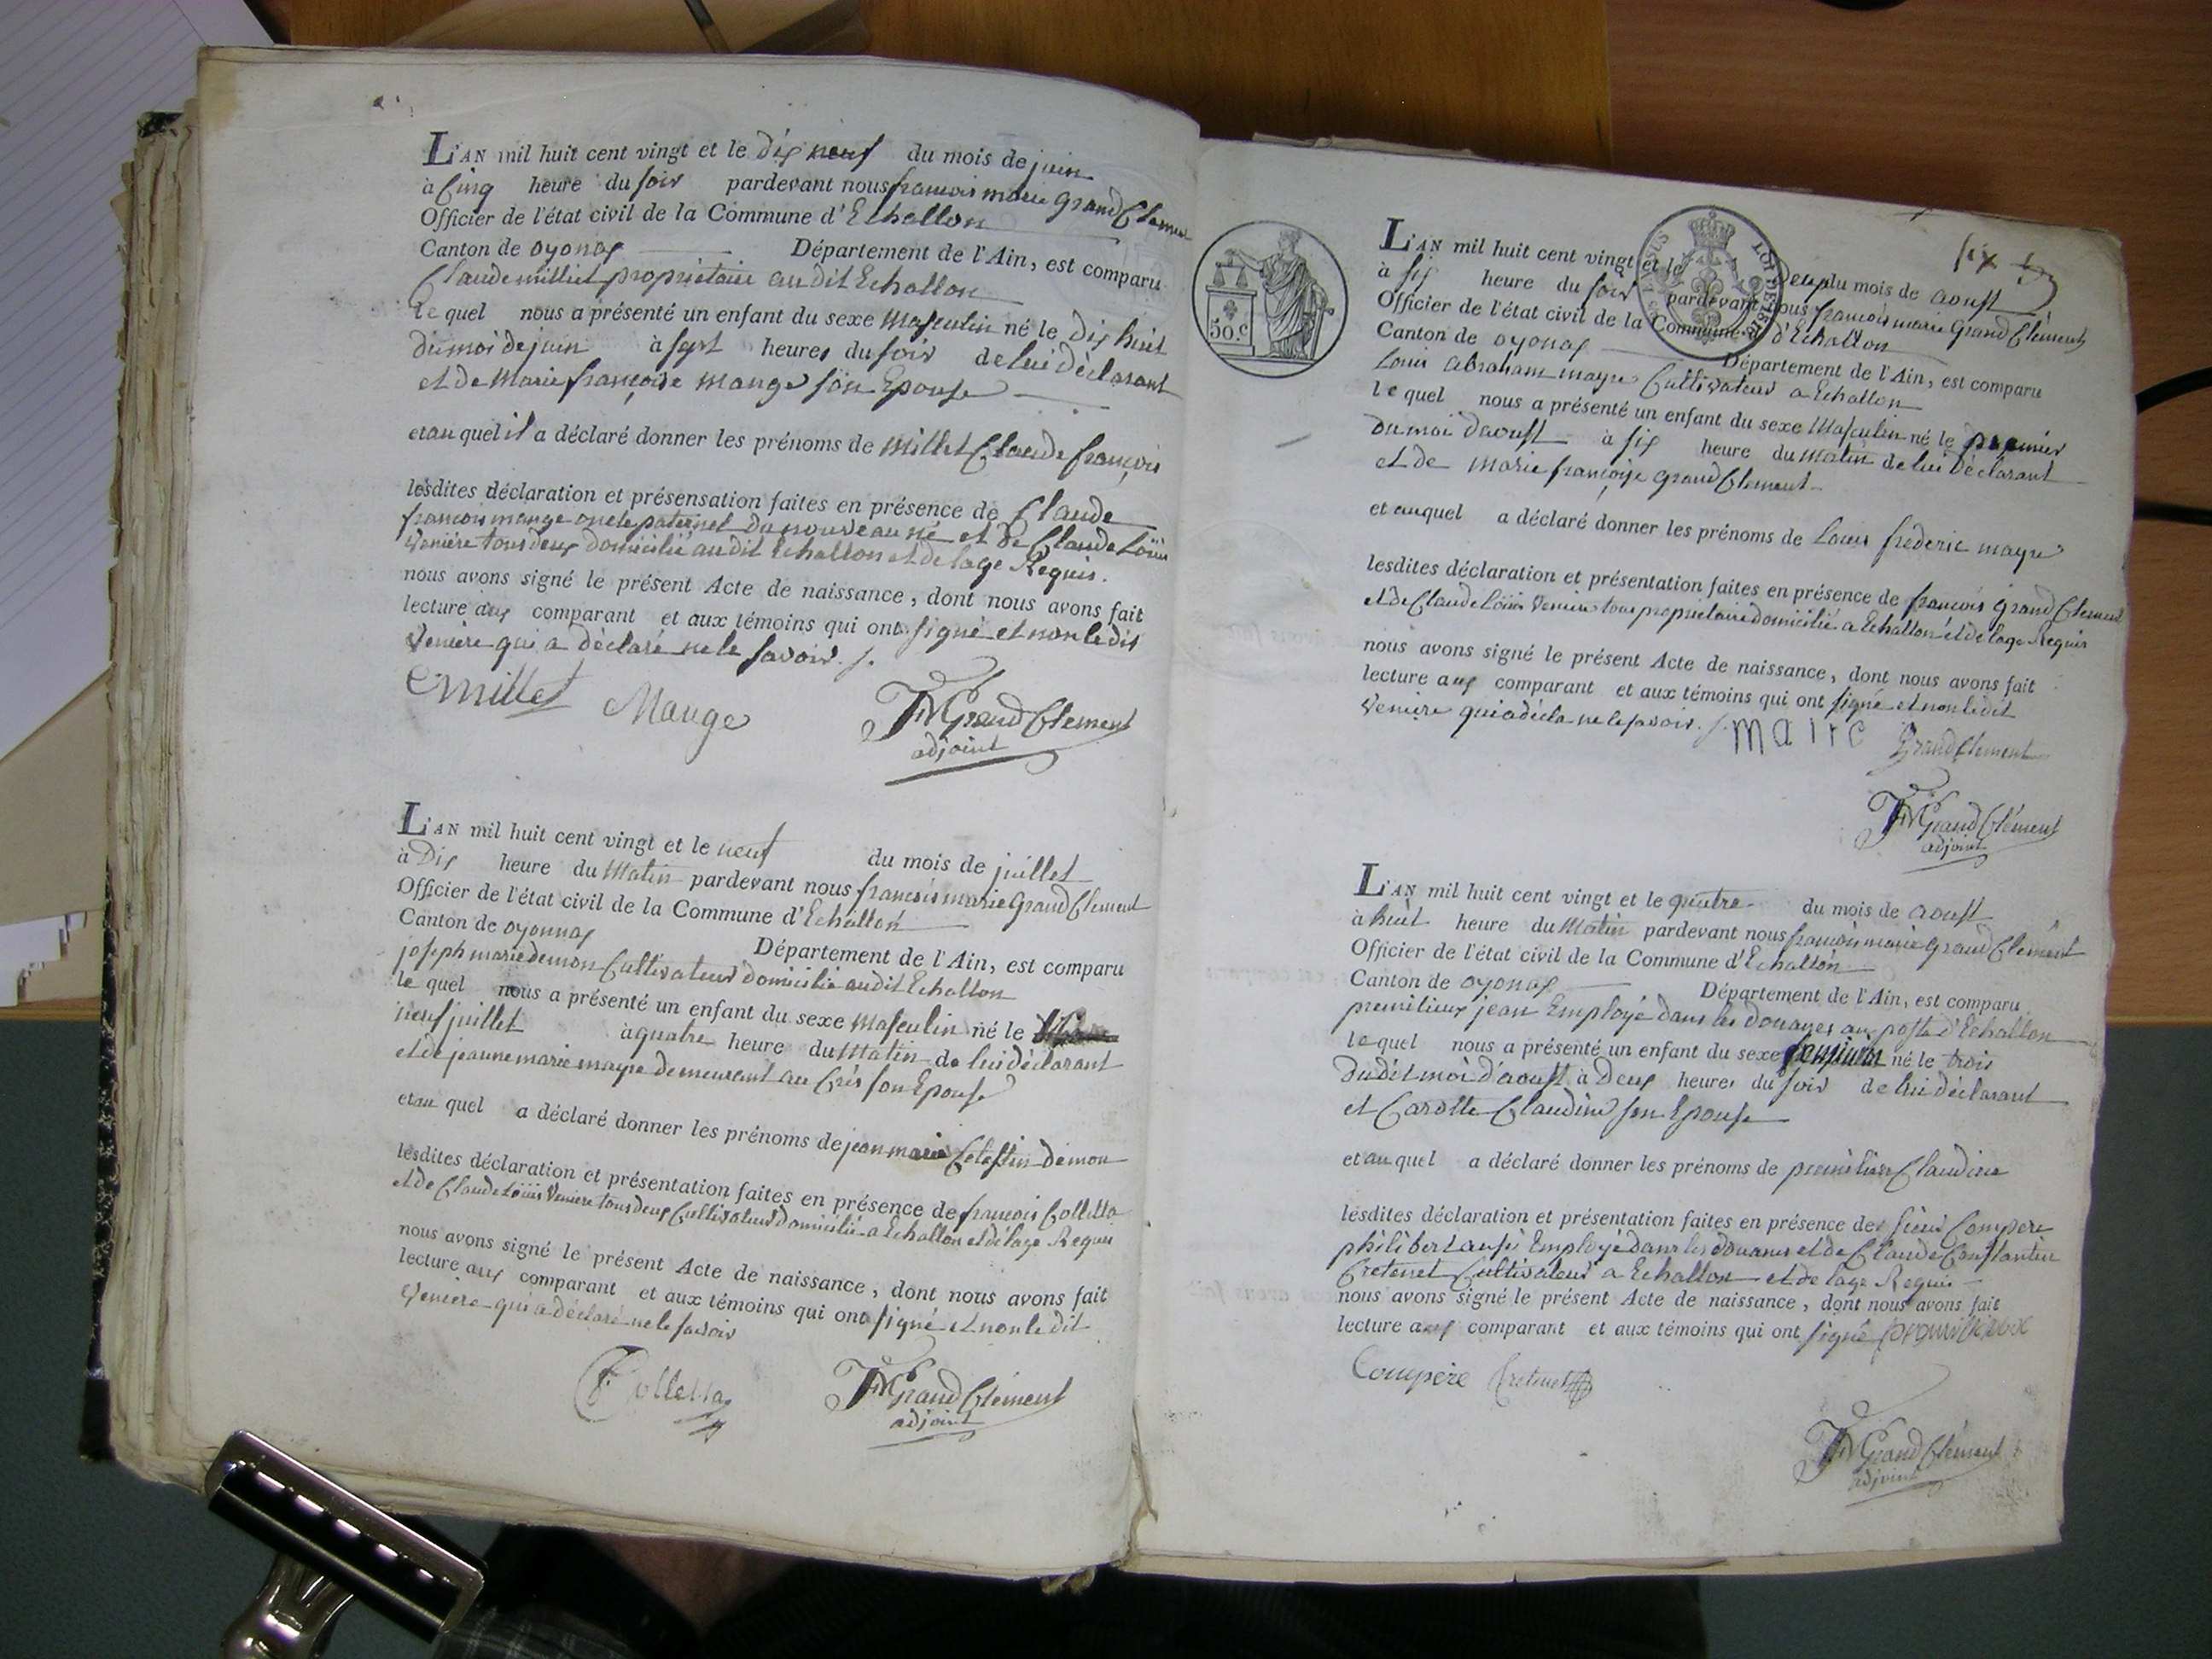 L'AN mil huit cent vingt et le dix neuf du mois de juin
à Cinq heure du soir pardevant nous francois marie Grand Clement
Officier de l'état civil de la Commune d'Echallon
Canton de oyonax Département de l'Ain, est comparu
Claude millet propriétaire audit Echallon
le quel nous a présenté un enfant du sexe Masculin né le Dix huit
du moi de juin à sept heures du soir de lui déclarant
et de Marie françoise mange son Epouse
et au quel il a déclaré donner les prénoms de millet Claude françois
lesdites déclaration et présensation faites en présence de Claude
francois mange oncle paternel du nouveau né et de Claude Loüis
Veniére tous deux domicilié audit Echallon et de lage Requis.
nous avons signé le présent Acte de naissance, dont nous avons fait
lecture aux comparant et aux témoins qui ont signé et non le dit
Veniére qui a déclaré ne le savoir.
Cmillet Mange FM Grand Clement
adjoint
L'AN mil huit cent vingt et le neuf du mois de juillet
à Dix heure du Matin pardevant nous francois marie Grand Clement
Officier de l'état civil de la Commune d'Echallon
Canton de oyonnax Département de l'Ain, est comparu
joseph marie demon Cultivateur domicilié audit Echallon
le quel nous a présenté un enfant du sexe Masculin né le
neuf juillet à quatre heure du Matin de lui déclarant
et de jeanne marie mayre demeurant au Crès son Epouse
et au quel a déclaré donner les prénoms de jean marie Celestin demon
lesdites déclaration et présentation faites en présence de francois Colletta
et de Claude Loüis Veniere tous deux Cultivateur domicilié a Echallon et de lage Requis
nous avons signé le présent Acte de naissance, dont nous avons fait
lecture aux comparant et aux témoins qui ont signé et non le dit
Veniere qui a déclaré ne le savoir
Colletta FM Grand Clément
adjoint
six
50.c
L'AN mil huit cent vingt et le Deux du mois de aoust
à six heure du soir pardevant nous francois marie Grand Clément
Officier de l'état civil de la Commune d'Echallon
Canton de oyonax Département de l'Ain, est comparu
Louis abraham mayre Cultivateur a Echallon
le quel nous a présenté un enfant du sexe Masculin né le premier
du moi daoust à six heure du matin de lui déclarant
et de marie françoise Grand Clement
et auquel a déclaré donner les prénoms de Louis fréderic mayre
lesdites déclaration et présentation faites en présence de francois Grand Clement
et de Claude Loüis Veniere tous propriétaire domicilié a Echallon et de lage Requis
nous avons signé le présent Acte de naissance, dont nous avons fait
lecture aux comparant et aux témoins qui ont signé et non le dit
Veniere qui a décla ne le savoir. Grand Clement
FM Grand Clément
adjoint
L'AN mil huit cent vingt et le quatre du mois de aoust
à huit heure du Matin pardevant nous francois marie Grand Clement
Officier de l'état civil de la Commune d'Echallon
Canton de oyonax Département de l'Ain, est comparu
jean Employé dans les douanes au poste d'Echallon
le quel nous a présenté un enfant du sexe né le trois
du dit moi d'aoust à Deux heures du soir de lui déclarant
et Carotte Claudine son Epouse
et au quel a déclaré donner les prénoms de Claudine
lesdites déclaration et présentation faites en présence des sieur Compere
philibert aussi Employé dans les douanes et de Claude Constantin
Cretenet Cultivateur a Echallon et de lage Requis
nous avons signé le présent Acte de naissance, dont nous avons fait
lecture aux comparant et aux témoins qui ont signé
Compere Cretenet
FM Grand Clément
adjoint